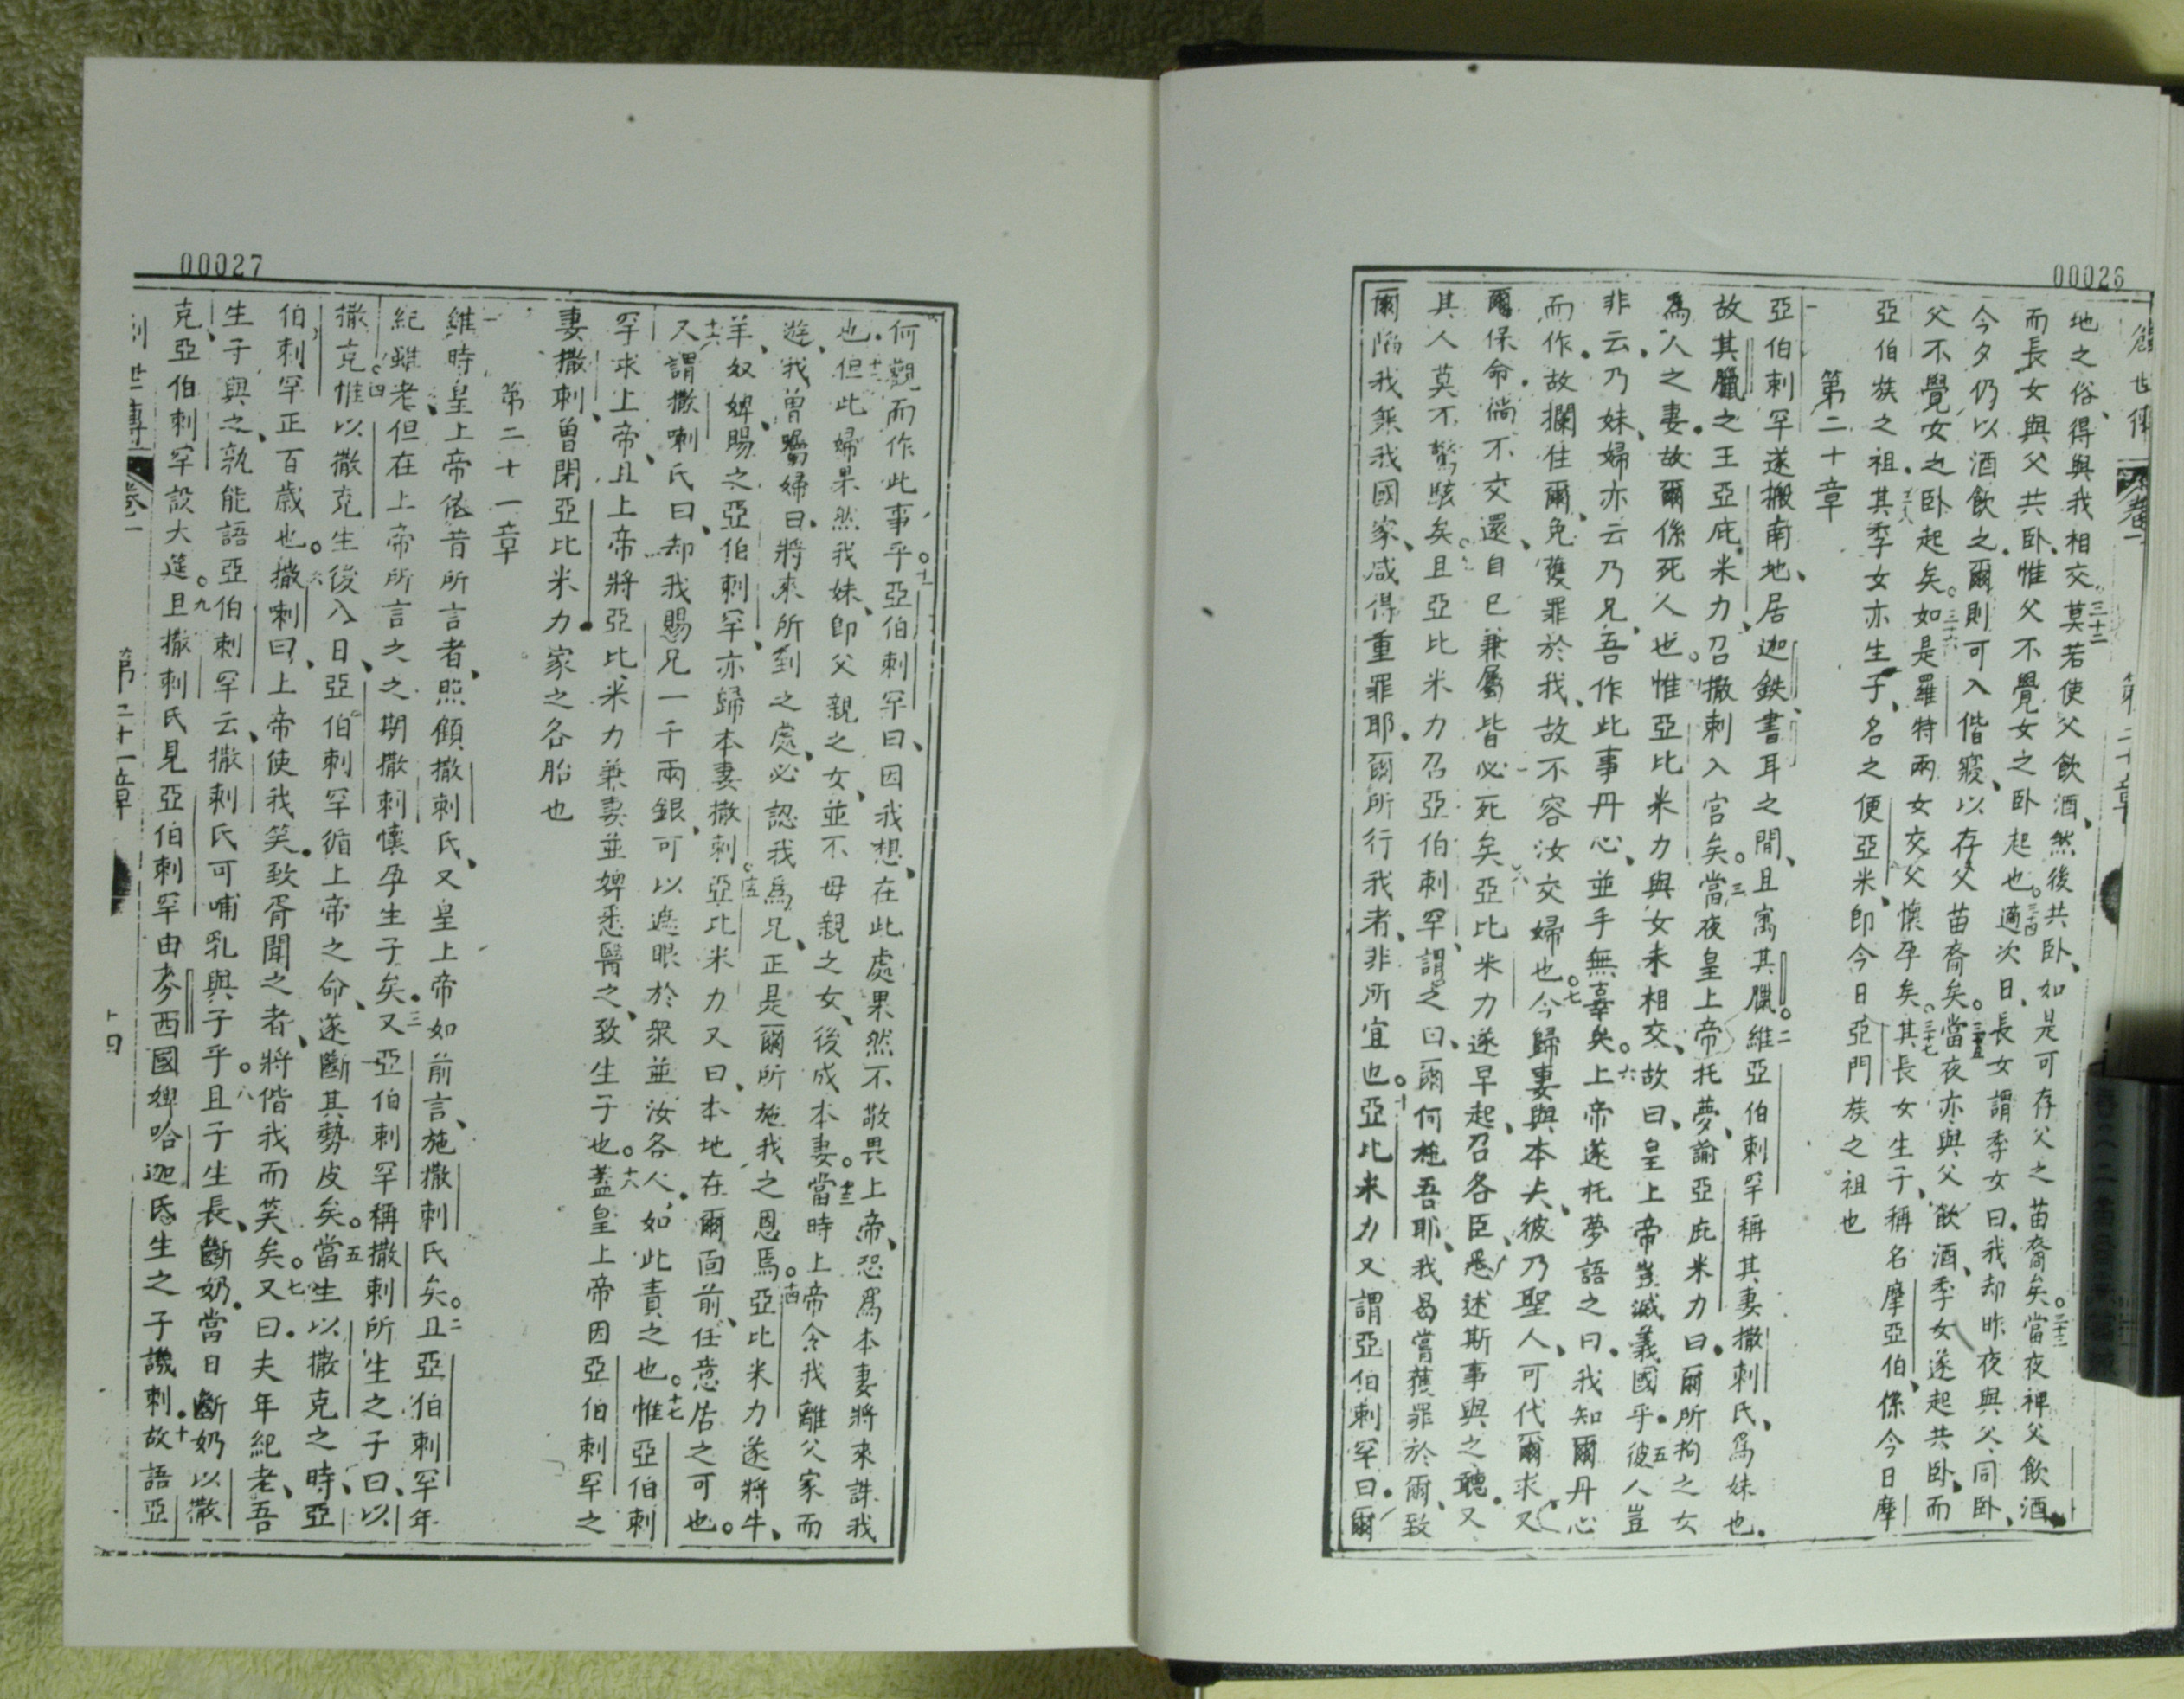 00026
地之俗、得與我相交。三十二莫若使父飲酒、然後共卧、如是可存父之苗裔矣。三十三當夜裨父飲酒、
而長女與父共卧、惟父不覺女之卧起也。三十四適次日、長女謂季女曰、我却昨夜與父同卧、
今夕仍以酒飲之、爾則可入偕寢、以存父苗裔矣。三十五當夜亦與父飲酒、季女遂起共卧、而
父不覺女之卧起矣。三十六如是羅特兩女交父懷孕矣。三十七其長女生子、稱名摩亞伯、係今日摩
亞伯族之祖。三十八其季女亦生子、名之便亞米、即今日亞門族之祖也
第二十章
一亞伯剌罕遂搬南地、居迦鉄、書耳之間、且寓其臘。二維亞伯剌罕稱其妻撒剌氏、爲妹也。
故其臘之王亞庇米力、召撒剌入宮矣。三當夜皇上帝托夢、諭亞庇米力曰、爾所拘之女
爲人之妻、故爾係死人也。惟亞比米力與女未相交、故曰、皇上帝豈滅義國乎。五彼人豈
非云、乃妹、婦亦云乃兄、吾作此事丹心、並手無辜矣。六上帝遂托夢語之曰、我知爾丹心
而作、故攔住爾、免獲罪於我、故不容汝交婦也。七今歸妻與本夫、彼乃聖人、可代爾求又
爾保命、徜不交還、自己兼屬皆必死矣。八亞比米力遂早起、召各臣、悉述斯事與之聽、又
其人莫不驚駭矣。且亞比米力召亞伯剌罕、謂之曰、爾何施吾耶、我曷嘗獲罪於爾、致
爾陷我無我國家、咸得重罪耶。爾所行我者、非所宜也。十亞比米力又謂亞伯剌罕曰、爾
00027
何觀而作此事乎。十一亞伯剌罕曰、因我想、在此處果然不敬畏上帝、恐爲本妻將來誅我
也。十二但此婦果然我妹、即父親之女、並不母親之女、後成本妻。十三當時上帝令我離父家而
遊、我曾囑婦曰、將來所到之處、必認我爲兄、正是爾所施我之恩焉。十四亞比米力遂將牛、
羊、奴、婢、賜之亞伯剌罕、亦歸本妻撒剌。十五亞比米力又曰、本地在爾面前、任意居之可也。
十六又謂撒喇氏曰、却我賜兄一千兩銀、可以遮眼於衆並汝各人、如此責之也。十七惟亞伯剌
罕求上帝、且上帝將亞比米力兼妻並婢悉醫之、致生子也。十八蓋皇上帝因亞伯剌罕之
妻撒剌、曾閉亞比米力家之各胎也
第二十一章
一維時皇上帝依昔所言者、照顧撒剌氏、又皇上帝如前言、施撒剌氏矣。二且亞伯剌罕年
紀雖老、但在上帝所言之之期撒剌懷孕生子矣。三又亞伯剌罕稱撒剌所生之子曰、以
撒克。四惟以撒克生後八日、亞伯剌罕循上帝之命、遂斷其勢皮矣。五當生以撒克之時、亞
伯剌罕正百歲也。六撒喇曰、上帝使我笑、致胥聞之者、將偕我而笑矣。七又曰、夫年紀老、吾
生子與之、孰能語亞伯剌罕云、撒剌氏可哺乳與子乎。八且子生長、斷奶、當日斷奶以撒
克、亞伯剌罕設大筵。九且撒剌氏見亞伯剌罕由麥西國婢哈迦氏生之子譏剌。十故語亞
世傳 卷一 第二十一章